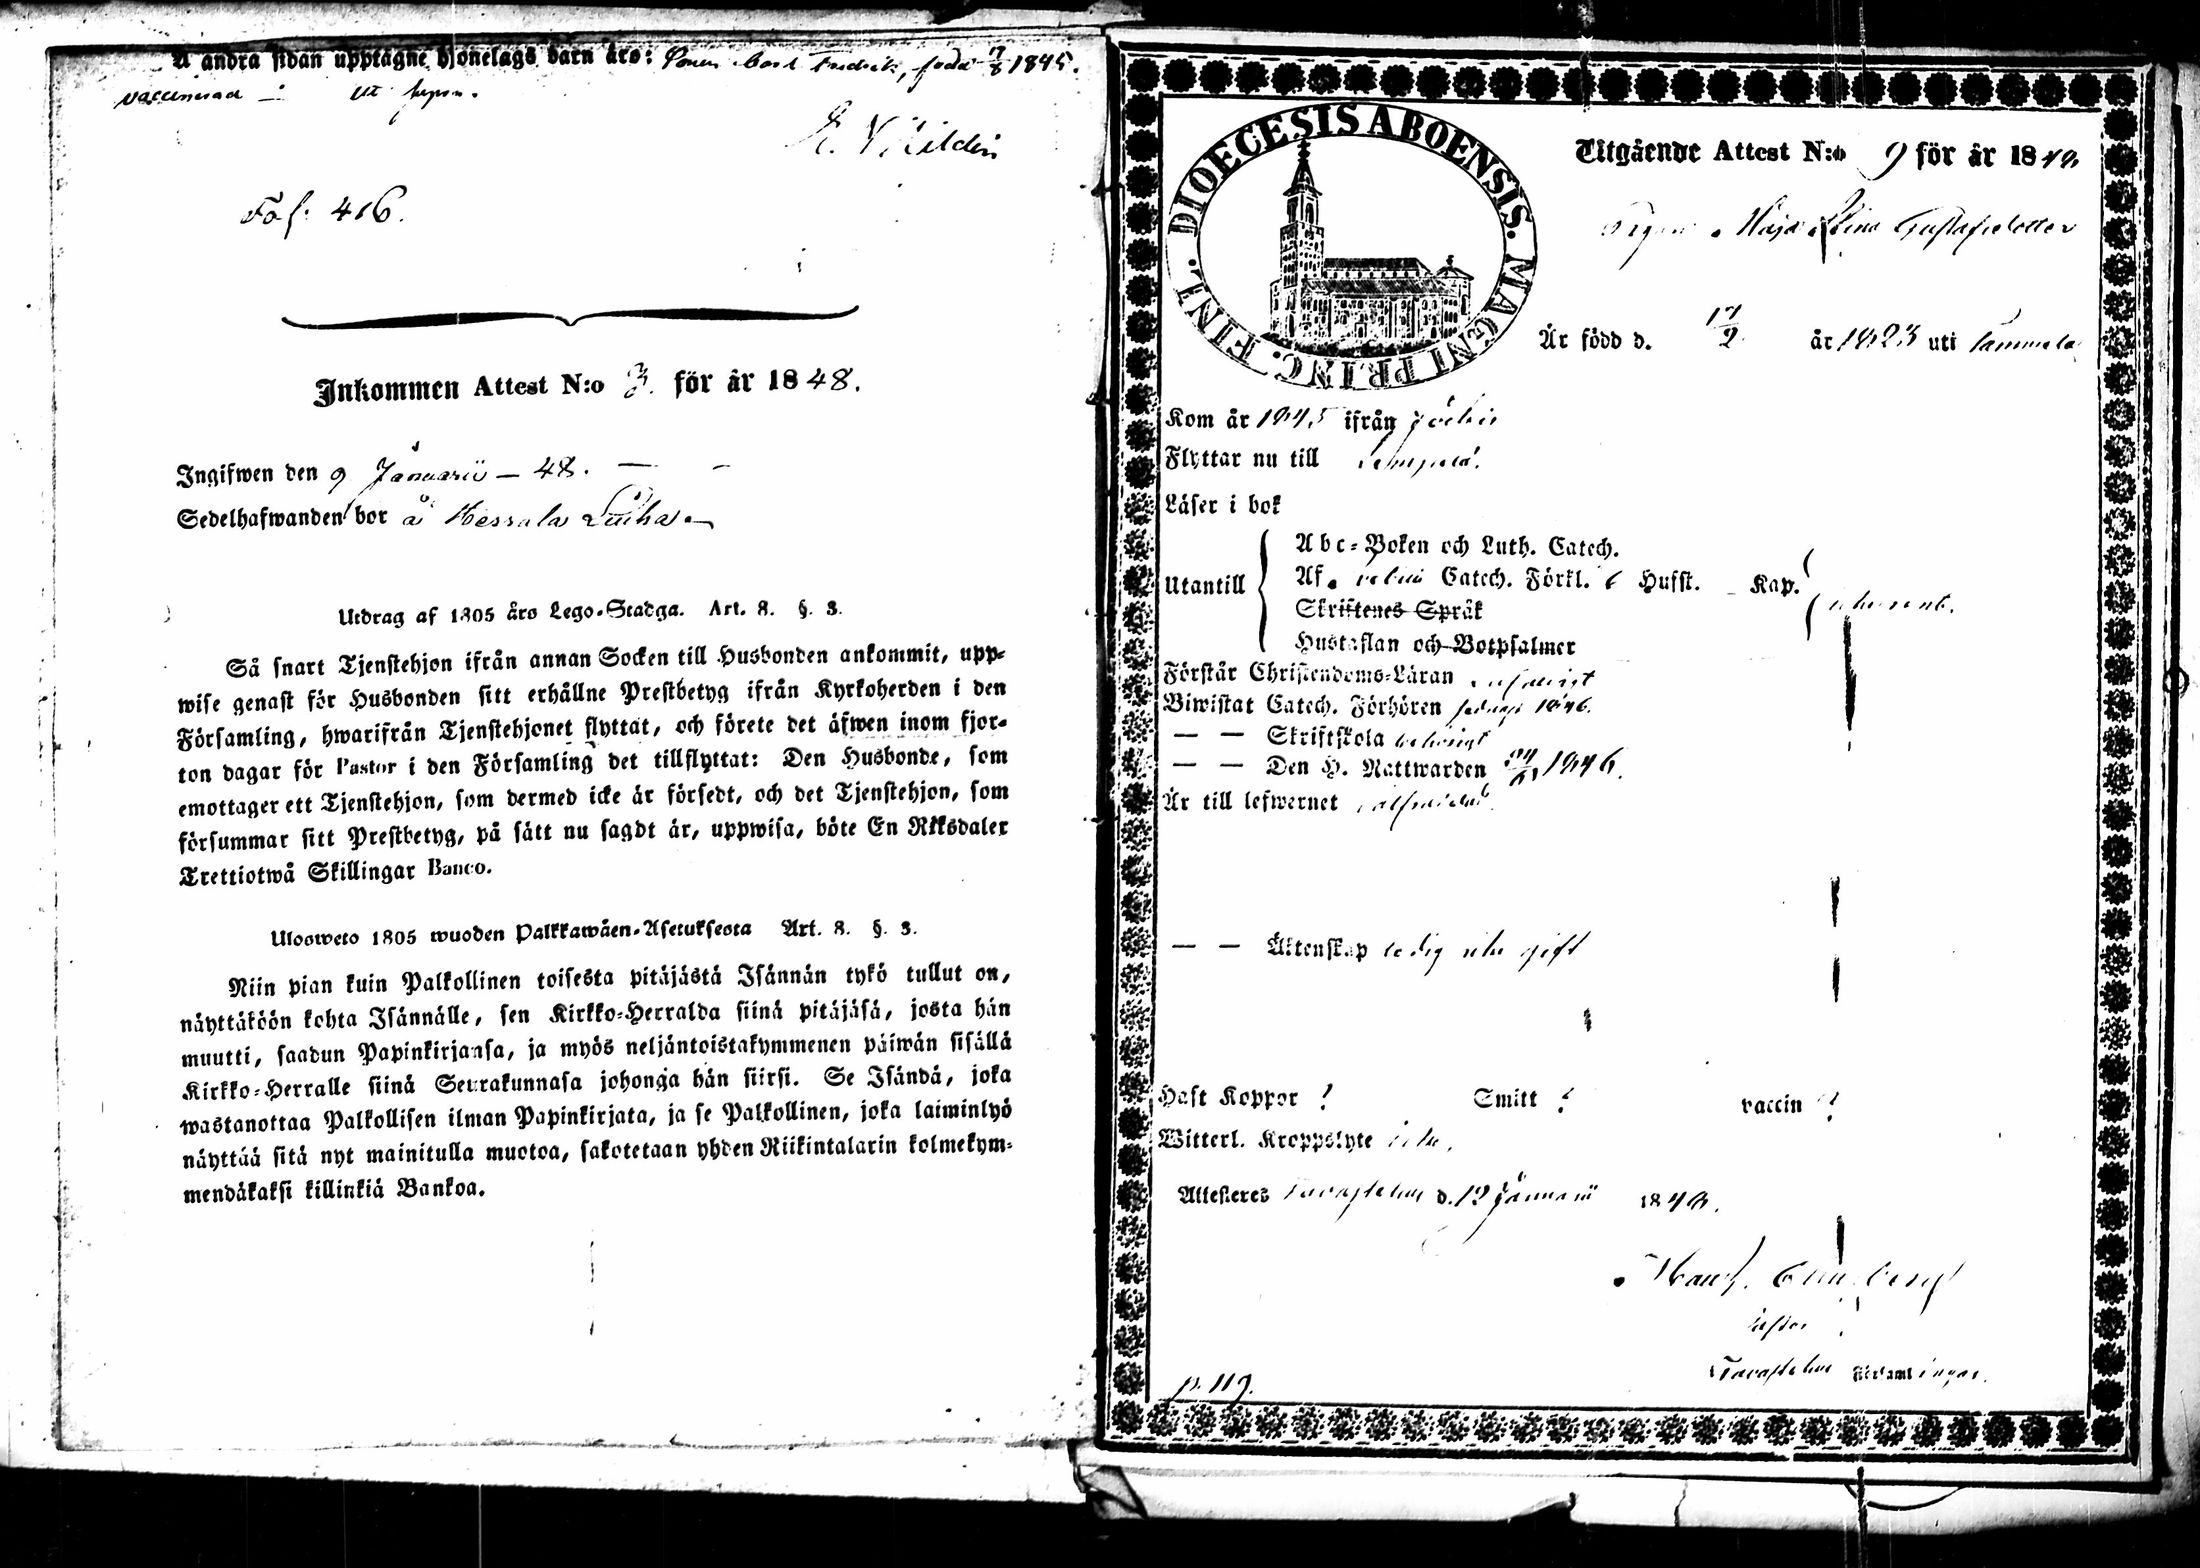 Å andra sidan upptagne hjonelags barn äro: Sonen Carl Fredrik, född 7/8 1845.
vaccinerad
Fol. 416.
Inkommen Attest N:o 3. för år 1848.
Ingifwen den 9 Januarii – 48. –
Sedelhafwanden bor å
Utdrag af 1805 års Lego-Stadga. Art. 8. §. 3.
Så snart Tjenstehjon ifrån annan Socken till Husbonden ankommit, upp-
wise genast för Husbonden sitt erhållne Prestbetyg ifrån Kyrkoherden i den
Församling, hwarifrån Tjenstehjonet flyttat, och förete det äfwen inom fjor-
ton dagar för Pastor i den Församling det tillflyttat: Den Husbonde, som
emottager ett Tjenstehjon, som dermed icke är försedt, och det Tjenstehjon, som
försummar sitt Prestbetyg, på sätt nu sagdt är, uppwisa, böte En Riksdaler
Trettiotwå Skillingar Banco.
Ulosweto 1805 wuoden Palkkawäen-Asetuksesta Art. 8. §. 3.
Niin pian kuin Palkollinen toisesta pitäjästä Isännän tykö tullut on,
näyttäköön kohta Isännälle, sen Kirkko-Herralda siinä pitäjäsä, josta hän
muutti, saadun Papinkirjansa, ja myös neljäntoistakymmenen päiwän sisällä
Kirkko-Herralle siinä Seurakunnasa johonga hän siirsi. Se Isändä, joka
wastanottaa Palkollisen ilman Papinkirjata, ja se Palkollinen, joka laiminlyö
näyttää sitä nyt mainitulla muotoa, sakotetaan yhden Riikintalarin kolmekym-
mendäkaksi killinkiä Bankoa.
DIOECESIS ABOENSIS. MAGNI PRINC. FINL.
Utgående Attest N:o 9 för år 1848
Pigan Maja Stina Gustafsdotter
Är född d. 17/2 år 1823 uti Tammela
Kom år 1845 ifrån Jockis
Flyttar nu till
Läser i bok
Utantill
Abc-Boken och Luth. Catech.
Af Catech. Förkl. 6 Hufst. Kap.
Skriftenes Språk
Hustaflan och Botpsalmer
Förstår Christendoms-Läran
Biwistat Catech. Förhören 1846.
— — Skriftskola behörigt
— — Den H. Nattwarden 1846.
Är till lefwernet
— — Äktenskap ledig icke gift
Haft Koppor ? Smitt ? vaccin ?
Witterl. Kroppslyte icke.
Attesteres Tavastehus d. 12 Januarii 1848.
Tavastehus Församlingar.
p. 119.